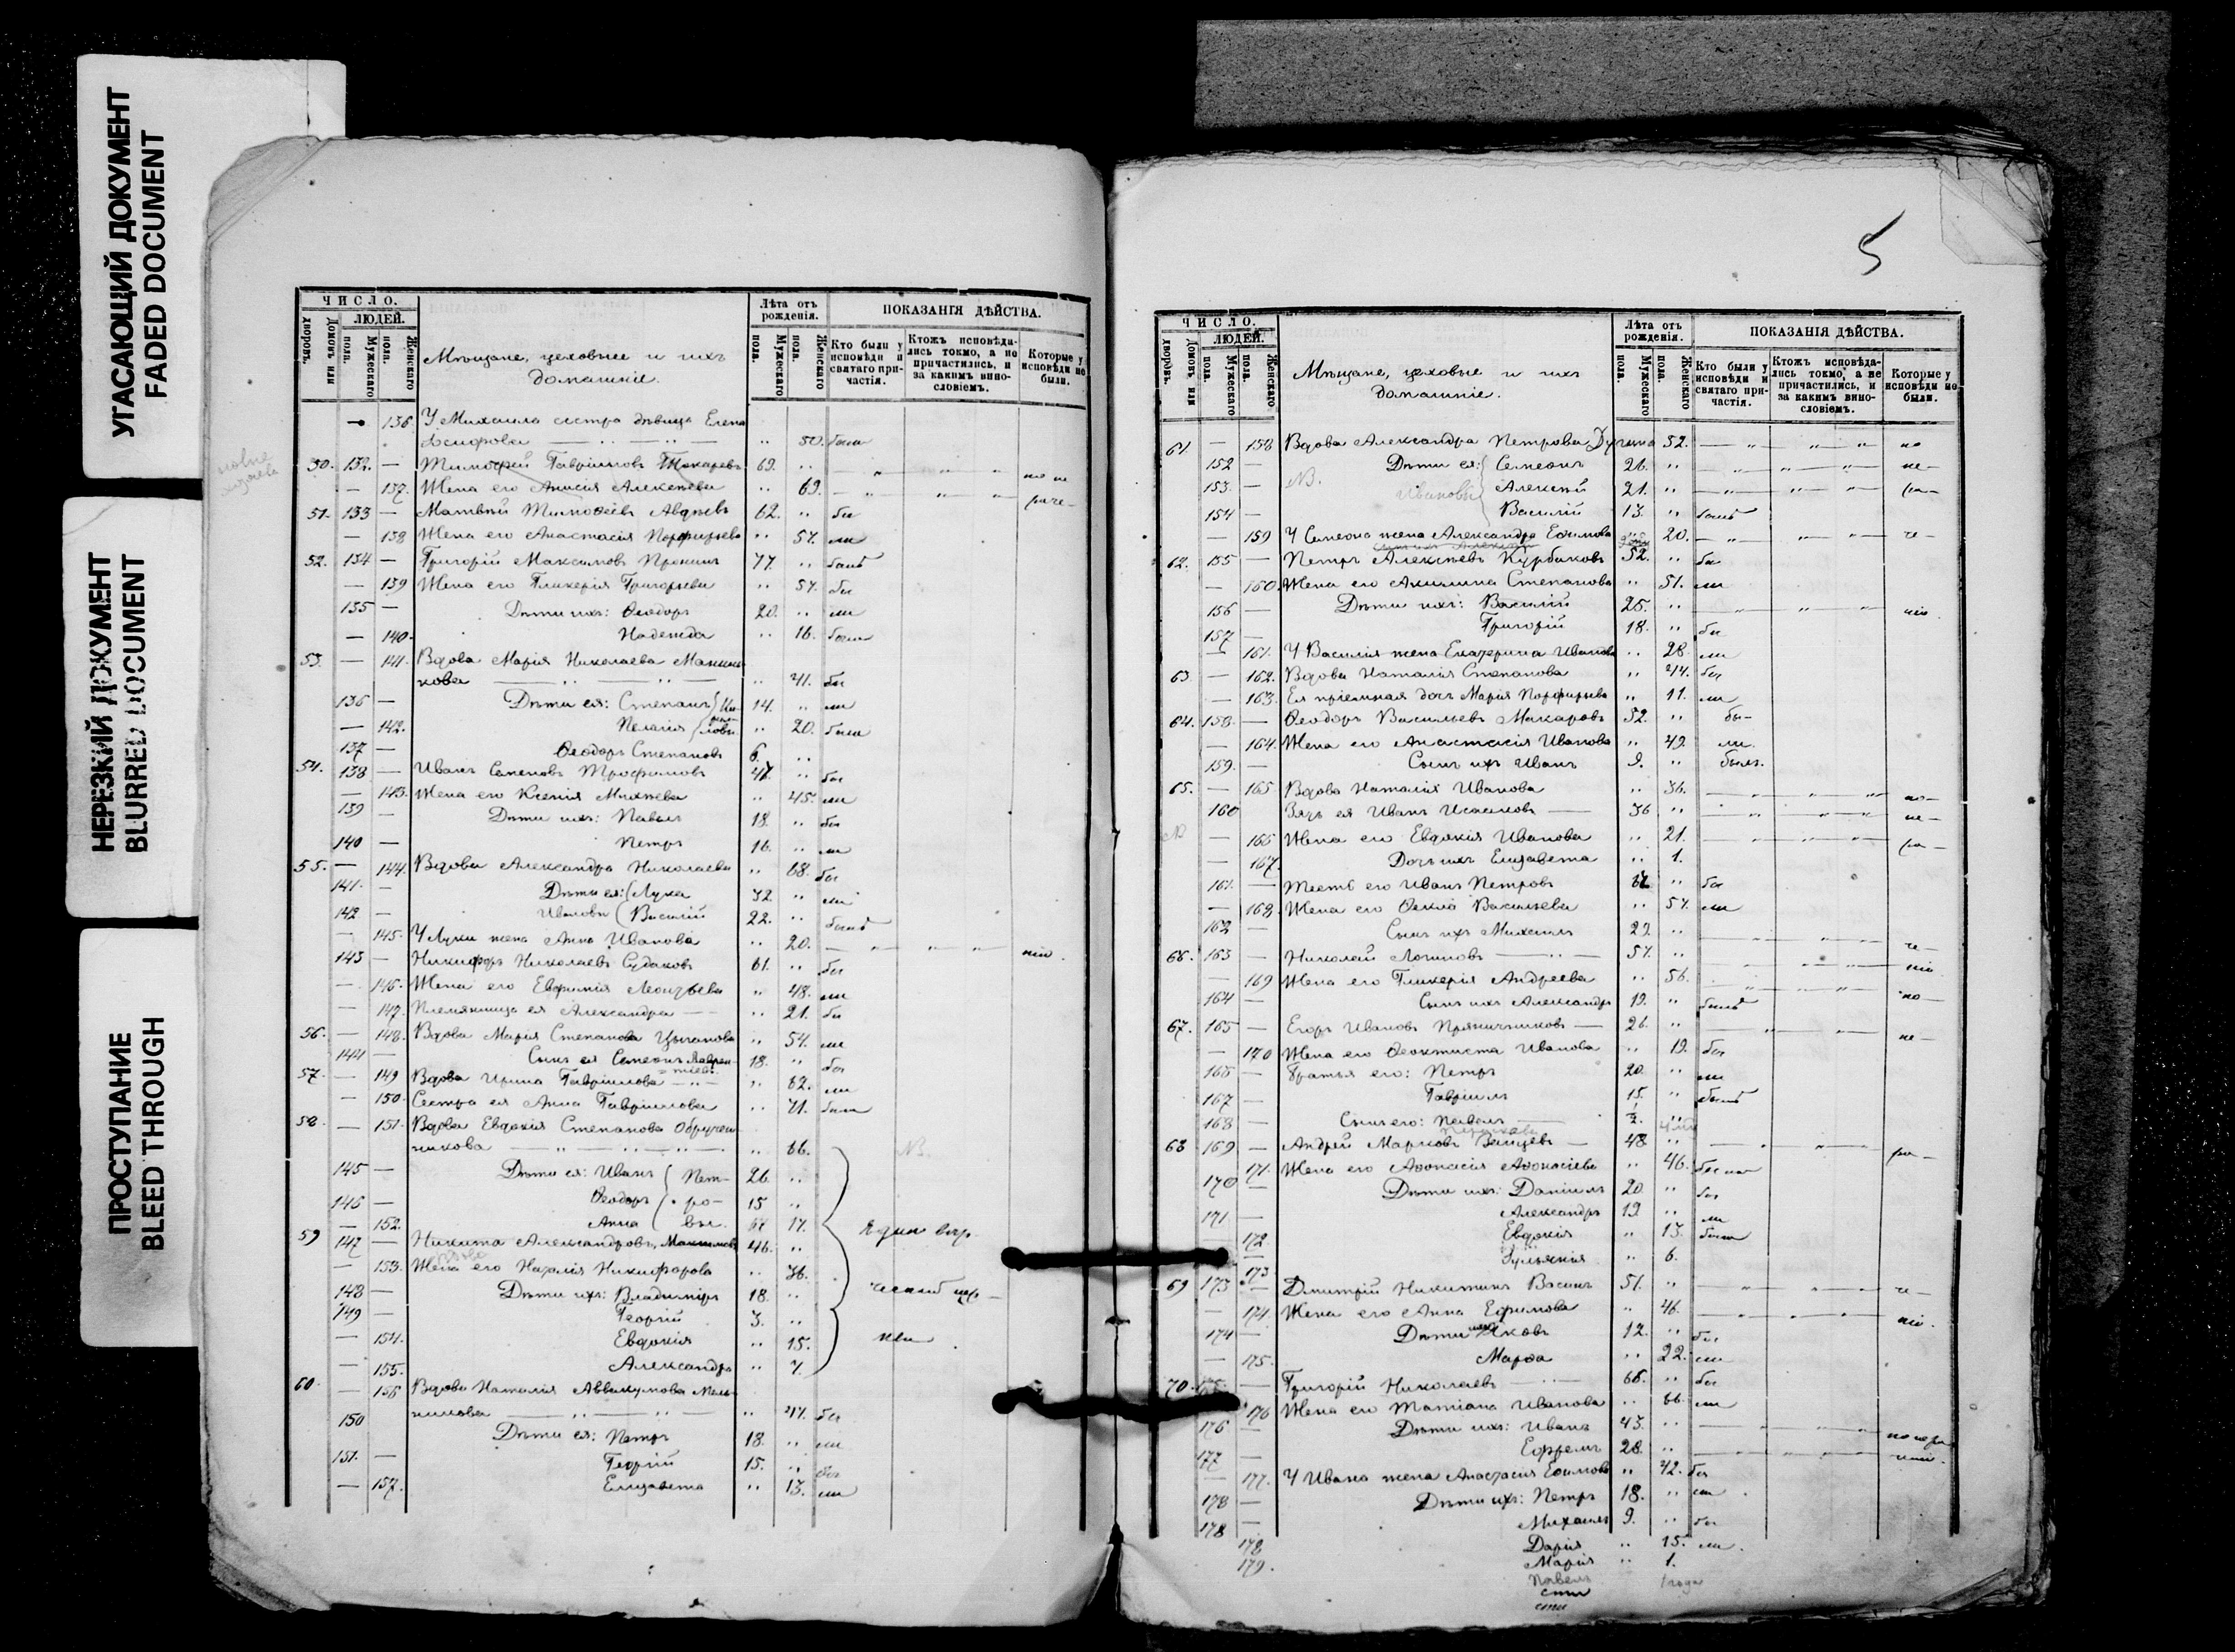 УГАСАЮЩИЙ ДОКУМЕНТ
FADED DOCUMENT
НЕРЕЗКИЙ ДОКУМЕНТ
BLURRED DOCUMENT
ПРОСТУПАНИЕ
BLEED THROUGH
ЧИСЛО.
ЛЮДЕЙ.
Домовъ или дворовъ.
Мужескаго пола.
Женскаго пола.
Мѣщане, цеховые и ихъ
домашніе.
Лѣта отъ рожденія.
Мужескаго пола.
Женскаго пола.
ПОКАЗАНІЯ ДѢЙСТВА.
Кто были у исповѣди и святаго причастія.
Ктожъ исповѣдались токмо, а не причастились, и за какимъ винословіемъ.
Которые у исповѣди не были.
— 136 У Михаила сестра дѣвица Елена
Ѳ 50. была
50. 132. — Тимоѳей Гавріиловъ Токаревъ 69. по не
— 137. Жена его Анисія Алексѣева 69. раче-
51. 133 — Матвѣй Тимоѳеевъ Авдѣевъ 62. бы
— 138 Жена его Анастасія Порфирьева 57. ли
52. 134 — Григорій Максимовъ Пронинъ 77. былъ
— 139 Жена его Гликерія Григорьева 57. бы
135 — Дѣти ихъ: Ѳеодоръ 20. ли
— 140. Надежда 16. была
53. — 141. Вдова Марія Николаева
кова 41. бы
136 — Дѣти ея: Степанъ 14. ли
— 142. Пелагія 20. была
137 — Ѳеодоръ Степановъ 6.
54. 138 — Иванъ Семеновъ Трофимовъ 47. бы
— 143. Жена его Ксенія Михѣева 45. ли
139 — Дѣти ихъ: Павелъ 18. бы
140 — Петръ 16. ли
55. — 144. Вдова Александра Николаева 68. бы
141. — Дѣти ея: Лука 32. ли
142 — Ивановы Василій 22. былъ
— 145. У Луки жена Анна Ивановa 20. нію.
143 — Никифоръ Николаевъ Судаковъ 61. бы
— 146. Жена его Евфимія Леонтьева 48. ли
— 147. Племянница ея Александра 21. бы
56. — 148. Вдова Марія Степанова Цыганова 54. ли
144 — Сынъ ея Семеонъ Лаврен- 18. бы
тіевъ
57. — 149 Вдова Ирина Гавріилова 62. ли
— 150. Сестра ея Анна Гавріилова 71. была
58. — 151. Вдова Евдокія Степанова Обручен-
никова 66. NB.
145 — Дѣти ея: Иванъ Пет- 26.
146 — Ѳеодоръ ро- 15
— 152. Анна вы. 17.
59 147 — Никита Александровъ 46.
— 153. Жена его Наталія Никифорова 36.
148 — Дѣти ихъ: Владиміръ 18.
149 — Георгій 3.
— 154. Евдокія 15.
— 155. Александра 7.
60. — 156 Вдова Наталія Аввакумова Мель-
никова 47. бы
150 Дѣти ея: Петръ 18. ли
151. — Георгій 15. бы
— 157. Елизавета 13. ли
5
ЧИСЛО.
ЛЮДЕЙ.
Домовъ или дворовъ.
Мужескаго пола.
Женскаго пола.
Мѣщане, цеховые и ихъ
домашніе.
Лѣта отъ рожденія.
Мужескаго пола.
Женскаго пола.
ПОКАЗАНІЯ ДѢЙСТВА.
Кто были у исповѣди и святаго причастія.
Ктожъ исповѣдались токмо, а не причастились, и за какимъ винословіемъ.
Которые у исповѣди не были.
61. — 158 Вдова Александра Петрова 52. по
152 — Дѣти ея: Семеонъ 26. не-
153. — NB. Ивановы Алексѣй 21. ра-
154 — Василій 13. былъ
— 159 У Семеона жена Александра Ефимова 20. че-
62. 155 — Петръ Алексѣевъ Курбаковъ 52. бы
— 160. Жена его Акилина Степанова 51. ли
156 — Дѣти ихъ: Василій 25. нію.
157 — Григорій 18. бы
— 161. У Василія жена Екатерина Иванова 28. ли
63. — 162. Вдова Наталія Степанова 44. бы
— 163. Ея пріемная дочь Марія Порфирьева 11. ли
64. 158. — Ѳеодоръ Васильевъ Макаровъ 52. бы-
— 164. Жена его Анастасія Иванова 49. ли.
159. — Сынъ ихъ Иванъ 9. былъ.
65. — 165 Вдова Наталія Иванова 56. по-
160 Зять ея Иванъ Исааковъ 36 не-
— 166 Жена его Евдокія Иванова 21. ра-
— 167. Дочь ихъ Елизавета 1.
161. — Тесть его Иванъ Петровъ бы
— 168. Жена его Ѳекла Васильева 57. ли
162 — Сынъ ихъ Михаилъ 29. че-
66. 163 — Николай Логиновъ 57. нію
— 169 Жена его Гликерія Андреева 56. по-
164 — Сынъ ихъ Александръ 19. былъ
67. 165 — Егоръ Ивановъ Пряничниковъ 26. не-
— 170 Жена его Ѳеоктиста Иванова 19. бы
166 — Братья его: Петръ 20. ли
167 — Гавріилъ 15. былъ
168 — Сынъ его: Павелъ ½.
68 169 — Андрей Марковъ Зайцевъ 48 ра-
171. Жена его Аѳонасія Аѳонасіева 46.
170 — Дѣти ихъ: Даніилъ 20. бы
171 — Александръ 19 ли
172. Евдокія 13. была
173 Іуліанія 6.
69 173 — Дмитрій Никитинъ Васинъ 51. че-
— 174. Жена его Анна Ефимова 46. нію.
174 — Дѣти ихъ Яковъ 12. бы
— 175. Марѳа 22. ли
70. 175 — Григорій Николаевъ 66. бы
176 Жена его Татіана Иванова 66. ли
176 — Дѣти ихъ: Иванъ 43.
177 — Ефремъ 28.
— 177. У Ивана жена Анастасія Ефимова 42. бы
178 — Дѣти ихъ: Петръ 18. ли
178 — Михаилъ 9. бы
178 Дарія 15. ли.
179. Марія 1.
Павелъ 1 года